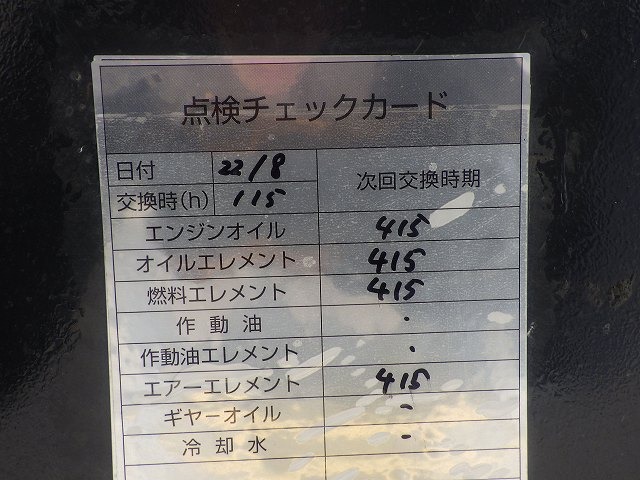 点検チェックカード
日付 22/8 次回交換時期
交換時(h) 115
エンジンオイル 415
オイルエレメント 415
燃料エレメント 415
作動油 ・
作動油エレメント ・
エアーエレメント 415
ギヤーオイル -
冷却水 -